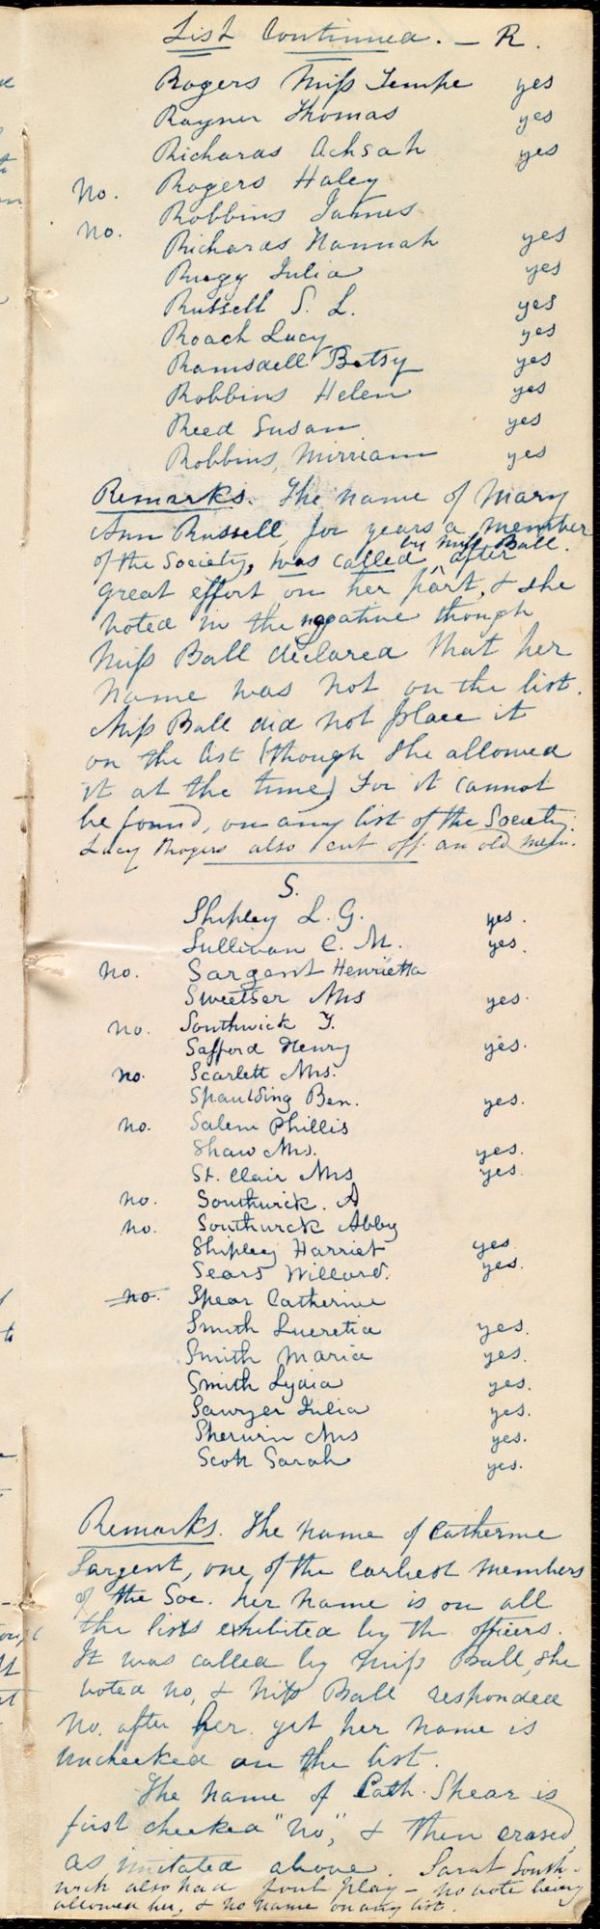 List Continued. — R.
Rogers Miss Tempe yes
Rayner Thomas yes
Richards Achsah yes
No. Rogers Haley
no. Robbins James
Richards Hannah yes
Rugg Julia yes
Russell S. L. yes
Roach Lucy yes
Ramsdell Betsy yes
Robbins Helen yes
Reed Susan yes
Robbins, Mirriam yes
Remarks. The name of Mary
Ann Russell, for years a member
of the Society, was called by Miss Ball. after
great effort on her part, & she
voted in the negative though
Miss Ball declared that her
name was not on the list.
Miss Ball did not place it
on the list (though she allowed
it at the time) for it cannot
be found, on any list of the Society
Lucy Rogers also cut off. an old mem.
S.
Shipley L. G. yes.
Sullivan C. M. yes.
no. Sargent Henrietta
Sweetser Mrs yes.
no. Southwick T.
Safford Henry yes.
no. Scarlett Mrs.
Spaulding Ben. yes.
no. Salem Phillis
Shaw Mrs. yes.
St. Clair Mrs yes.
no. Southwick. A
no. Southwick Abby
Shipley Harriet yes
Sears Willard. yes.
no. Spear Catherine
Smith Lucretia yes.
Smith Maria yes.
Smith Lydia yes.
Sawyer Julia yes.
Sherwin Mrs yes.
Scott Sarah yes.
Remarks. The name of Catherine
Sargent, one of the earliest members
of the Soc. her name is on all
the lists exhibited by the officers.
It was called by Miss Ball, she
voted no, & Miss Ball responded
No. after her. yet her name is
unchecked on the list.
The name of Cath. Spear is
first checked "no", & then erased,
as imitated above. Sarah South-
wick also had foul play - no vote being
allowed her, & no name on any list.